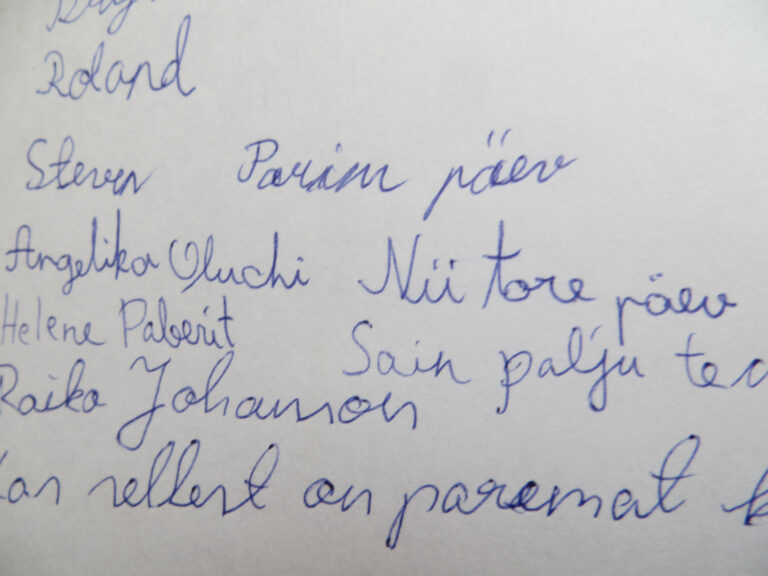 Roland
Steven Parim päev
Angelika Oluchi Nii tore päev
Helene Paberit
Sain palju
Raiko Johanson
sellest on paremat